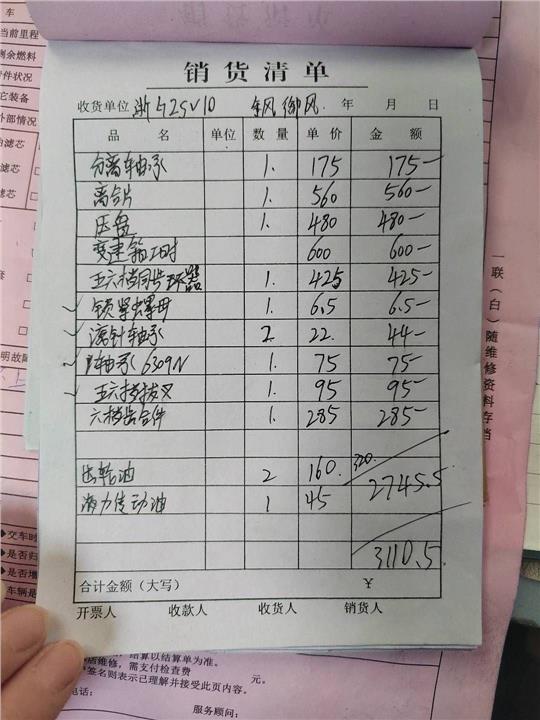 销货清单
收货单位 浙G25V10 东风御风 年 月 日
品 名 单位 数量 单价 金 额
分离轴承 1. 175 175-
离合片 1. 560 560-
压盘 1. 480 480-
变速箱工时 600 600-
五六档同步环器 1. 425 425-
锁紧螺母 1. 6.5 6.5-
滚针轴承 2. 22. 44-
轴承6309N 1. 75 75-
五六档拔叉 1. 95 95-
六档齿合件 1. 285 285-
齿轮油 2 160. 320.
2745.5
液力传动油 1 45
3110.5.
合计金额（大写） ¥
开票人 收款人 收货人 销货人
一联（白）随维修资料存档
车
当前里程
剩余燃料
件状况
它装备
外部情况
滤芯
滤芯
明故障
◆交车时
◆是否归
◆是否增
车辆是
结算以结算单为准。
店维修，需支付检查费 元。
签名则表示已理解并接受此页内容。
电话：
服务顾问：